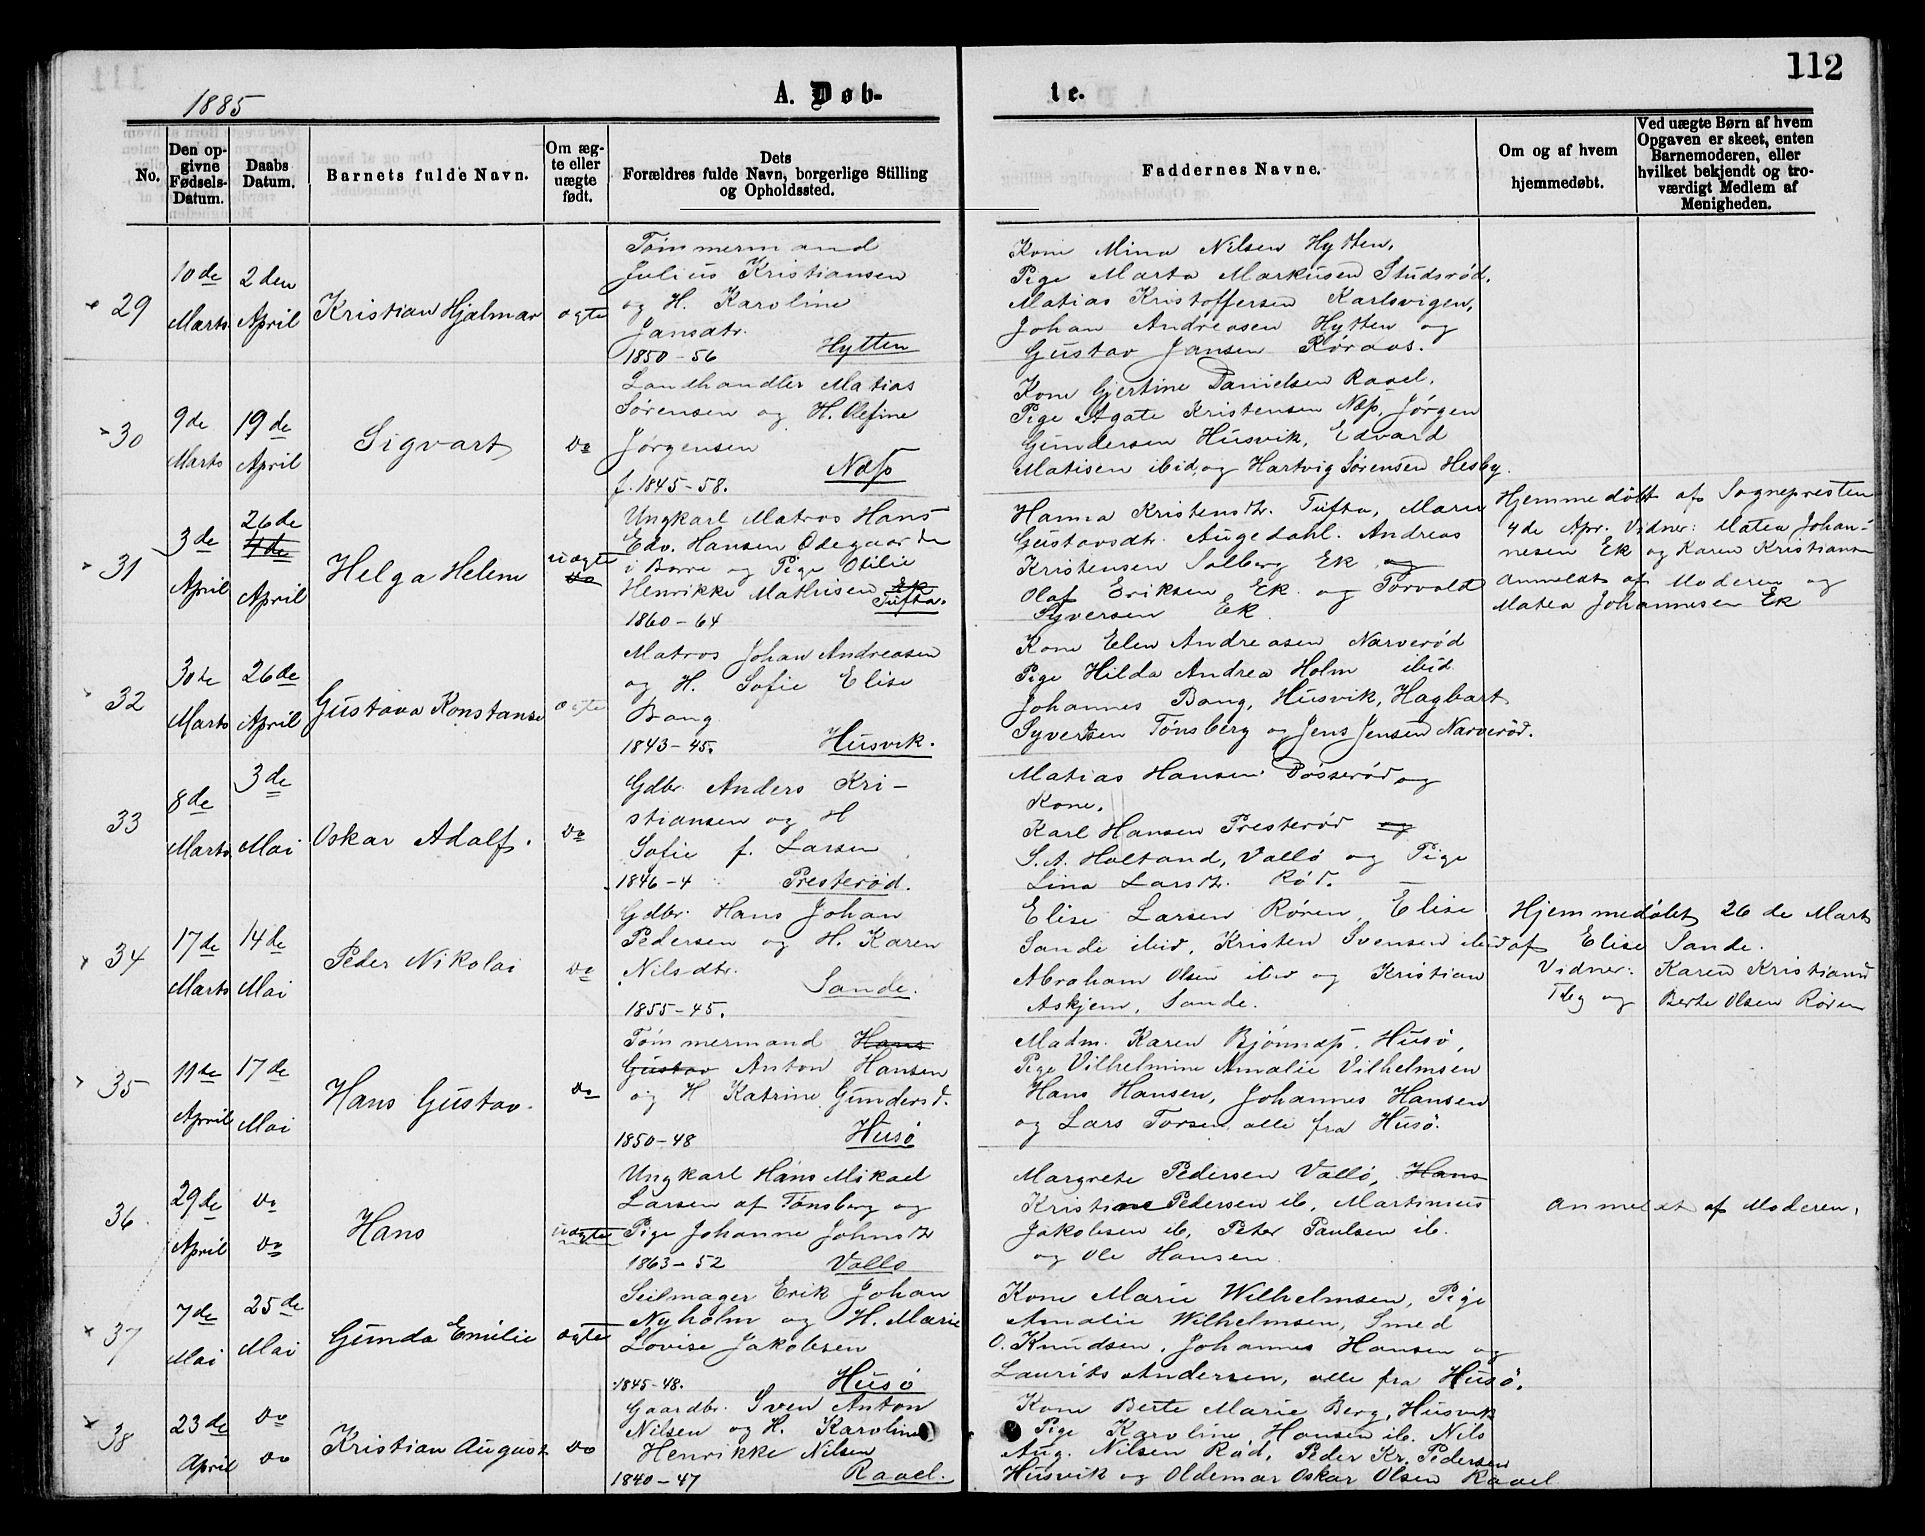 112
1885
A. Døb-
te.
No.
Den op-
givne
Fødsels-
Datum.
Daabs
Datum.
Barnets fulde Navn.
Om æg-
te eller
uægte
født.
Dets
Forældres fulde Navn, borgerlige Stilling
og Opholdssted.
Faddernes Navne.
Om og af hvem
hjemmedøbt.
Ved uægte Børn af hvem
Opgaven er skeet, enten
Barnemoderen, eller
hvilket bekjendt og tro-
værdigt Medlem af
Menigheden.
29
10de
Marts
2den
April
Kristian Hjalmar
ægte
Tømmermand
Julius Kristiansen
og H. Karoline
Jansdtr.
1850-56 Hytten
Kone Mina Nilsen Hytten,
Pige Marta Markusen Studsrød,
Matias Kristoffersen Karlsvigen,
Johan Andreasen Hytten og
Gustav Jansen Røraas.
30
9de
Marts
19de
April
Sigvart
do
Landhandler Matias
Sørensen og H. Olefine
Jørgensen
f. 1845-58. Næs
Kone Gjertine Danielsen Raael,
Pige Agate Kristensen Næs, Jørgen
Gundersen Husvik, Edvard
Matisen ibid, og Hartvig Sørensen Hesby.
31
3de
April
26de
4de
April
Helga Helene
uægte
do
Ungkarl Matros Hans
Edv. Hansen Ødegaarden
i Borre og Pige Otilie
Henrikke Mathisen Ek
Tufta.
1860-64
Hanna Kristensdtr. Tufta, Marie
Gustavsdtr. Augedahl. Andreas
Kristensen Solberg Ek og
Olaf Eriksen Ek og Torvald
Syversen Ek
Hjemmedøbt af Sognepresten
4de Apr. Vidner: Matea Johan-
nesen Ek og Karen Kristiansen
Anmeldt af Moderen og
Matea Johannesen Ek
32
30te
Marts
26de
April
Gustava Konstanse
ægte
Matros Johan Andreasen
og H. Sofie Elise
Bang
1843-45. Husvik.
Kone Elen Andreasen Narverød
Pige Hilda Andrea Holm ibid
Johannes Bang, Husvik, Hagbart
Syversen Tønsberg og Jens Jensen Narverød.
33
8de
Marts
3de
Mai
Oskar Adolf.
do
Gdbr. Anders Kri-
stiansen og H
Sofie f. Larsen
1846-4 Presterød.
Matias Hansen Døsserød og
Kone.
Karl Hansen Presterød og
S. A. Holtand, Vallø og Pige
Lina Larsdtr. Rød.
34
17de
Marts
14de
Mai
Peder Nikolai
do
Gdbr. Hans Johan
Pedersen og H. Karen
Nilsdtr.
Sande.
1855-45.
Elise Larsen Røren, Elise
Sande ibid, Kristen Svensen ibid
Abraham Olsen ibid og Kristian
Askjem, Sande.
Hjemmedøbt 26de Marts
af Elise Sande.
Vidner: Karen Kristiane
og Berte Olsen Røren
35
11te
April
17de
Mai
Hans Gustav.
do
Tømmermand Hans
Gustav Anton Hansen
og H Katrine Gundersd.
1850-48 Husø
Madm. Karen Bjønnæs, Husø,
Pige Vilhelmine Amalie Vilhelmsen
Hans Hansen, Johannes Hansen
og Lars Torsen, alle fra Husø.
36.
29de
April
do
do
Hans
uægte
Ungkarl Hans Mikael
Larsen af Tønsberg og
Pige Johanne Johnsdtr
1863-52 Vallø
Margrete Pedersen Vallø, Hans
Kristine Pedersen ib, Martinius
Jakobsen ib, Peter Paulsen ib.
og Ole Hansen
Anmeldt af Moderen.
37
7de
Mai
25de
Mai
Gunda Emilie
ægte
Seilmager Erik Johan
Nyholm og H. Marie
Lovise Jakobsen
1845-48. Husø
Kone Marie Wilhelmsen, Pige
Amalie Wilhelmsen, Smed
O. Knudsen, Johannes Hansen og
Laurits Andersen, alle fra Husø.
38
23de
April
do
do
Kristian August
do
Gaardbr. Sven Anton
Nilsen og H. Karoline
Henrikke Nilsen
1840-47 Raael.
Kone Berte Marie Berg, Husvik
Pige Karoline Hansen ib. Nils
Aug. Nilsen Rød, Peder Kr. Pedersen
Husvik og Oldemar Oskar Olsen Raael